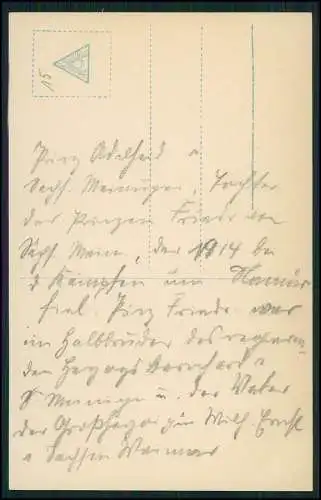 15
Prinz Adelheid v
Sachs. Meiningen, Tochter
des Prinzen Friedr von
Sachs. Mein, der 1914 bei
d Kämpfen um Namur
fiel. Prinz Friedr. war
ein Halbbruder des regieren
den Herzogs Bernhard v
S Meiningen u. der Vater
der Großherzogin Wilh. Ernst
v Sachsen Weimar